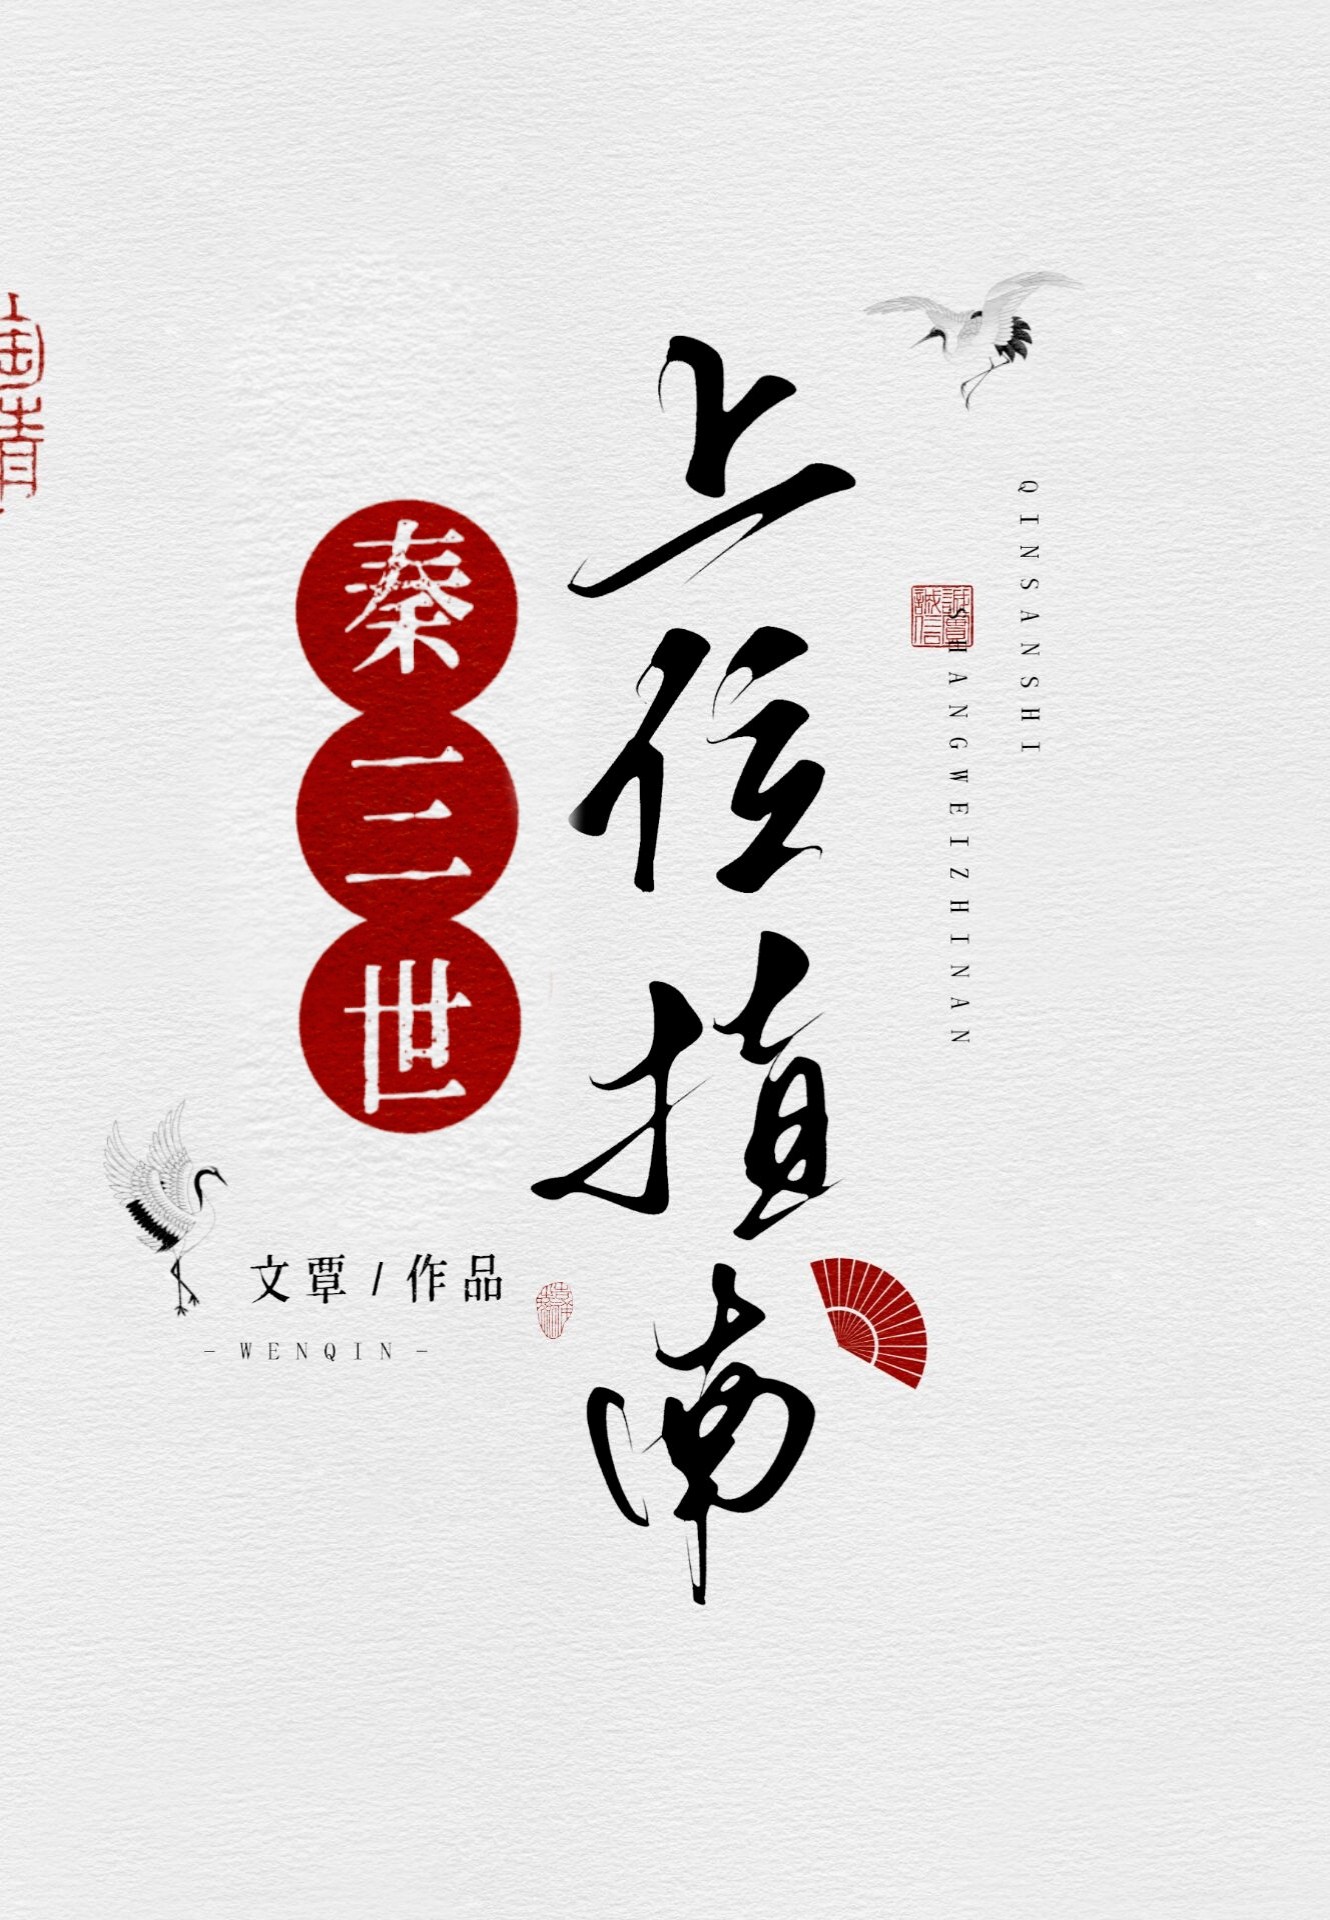 秦三世
上位指南
QINSANSHI
SHANGWEIZHINAN
文覃/作品
- WENQIN -